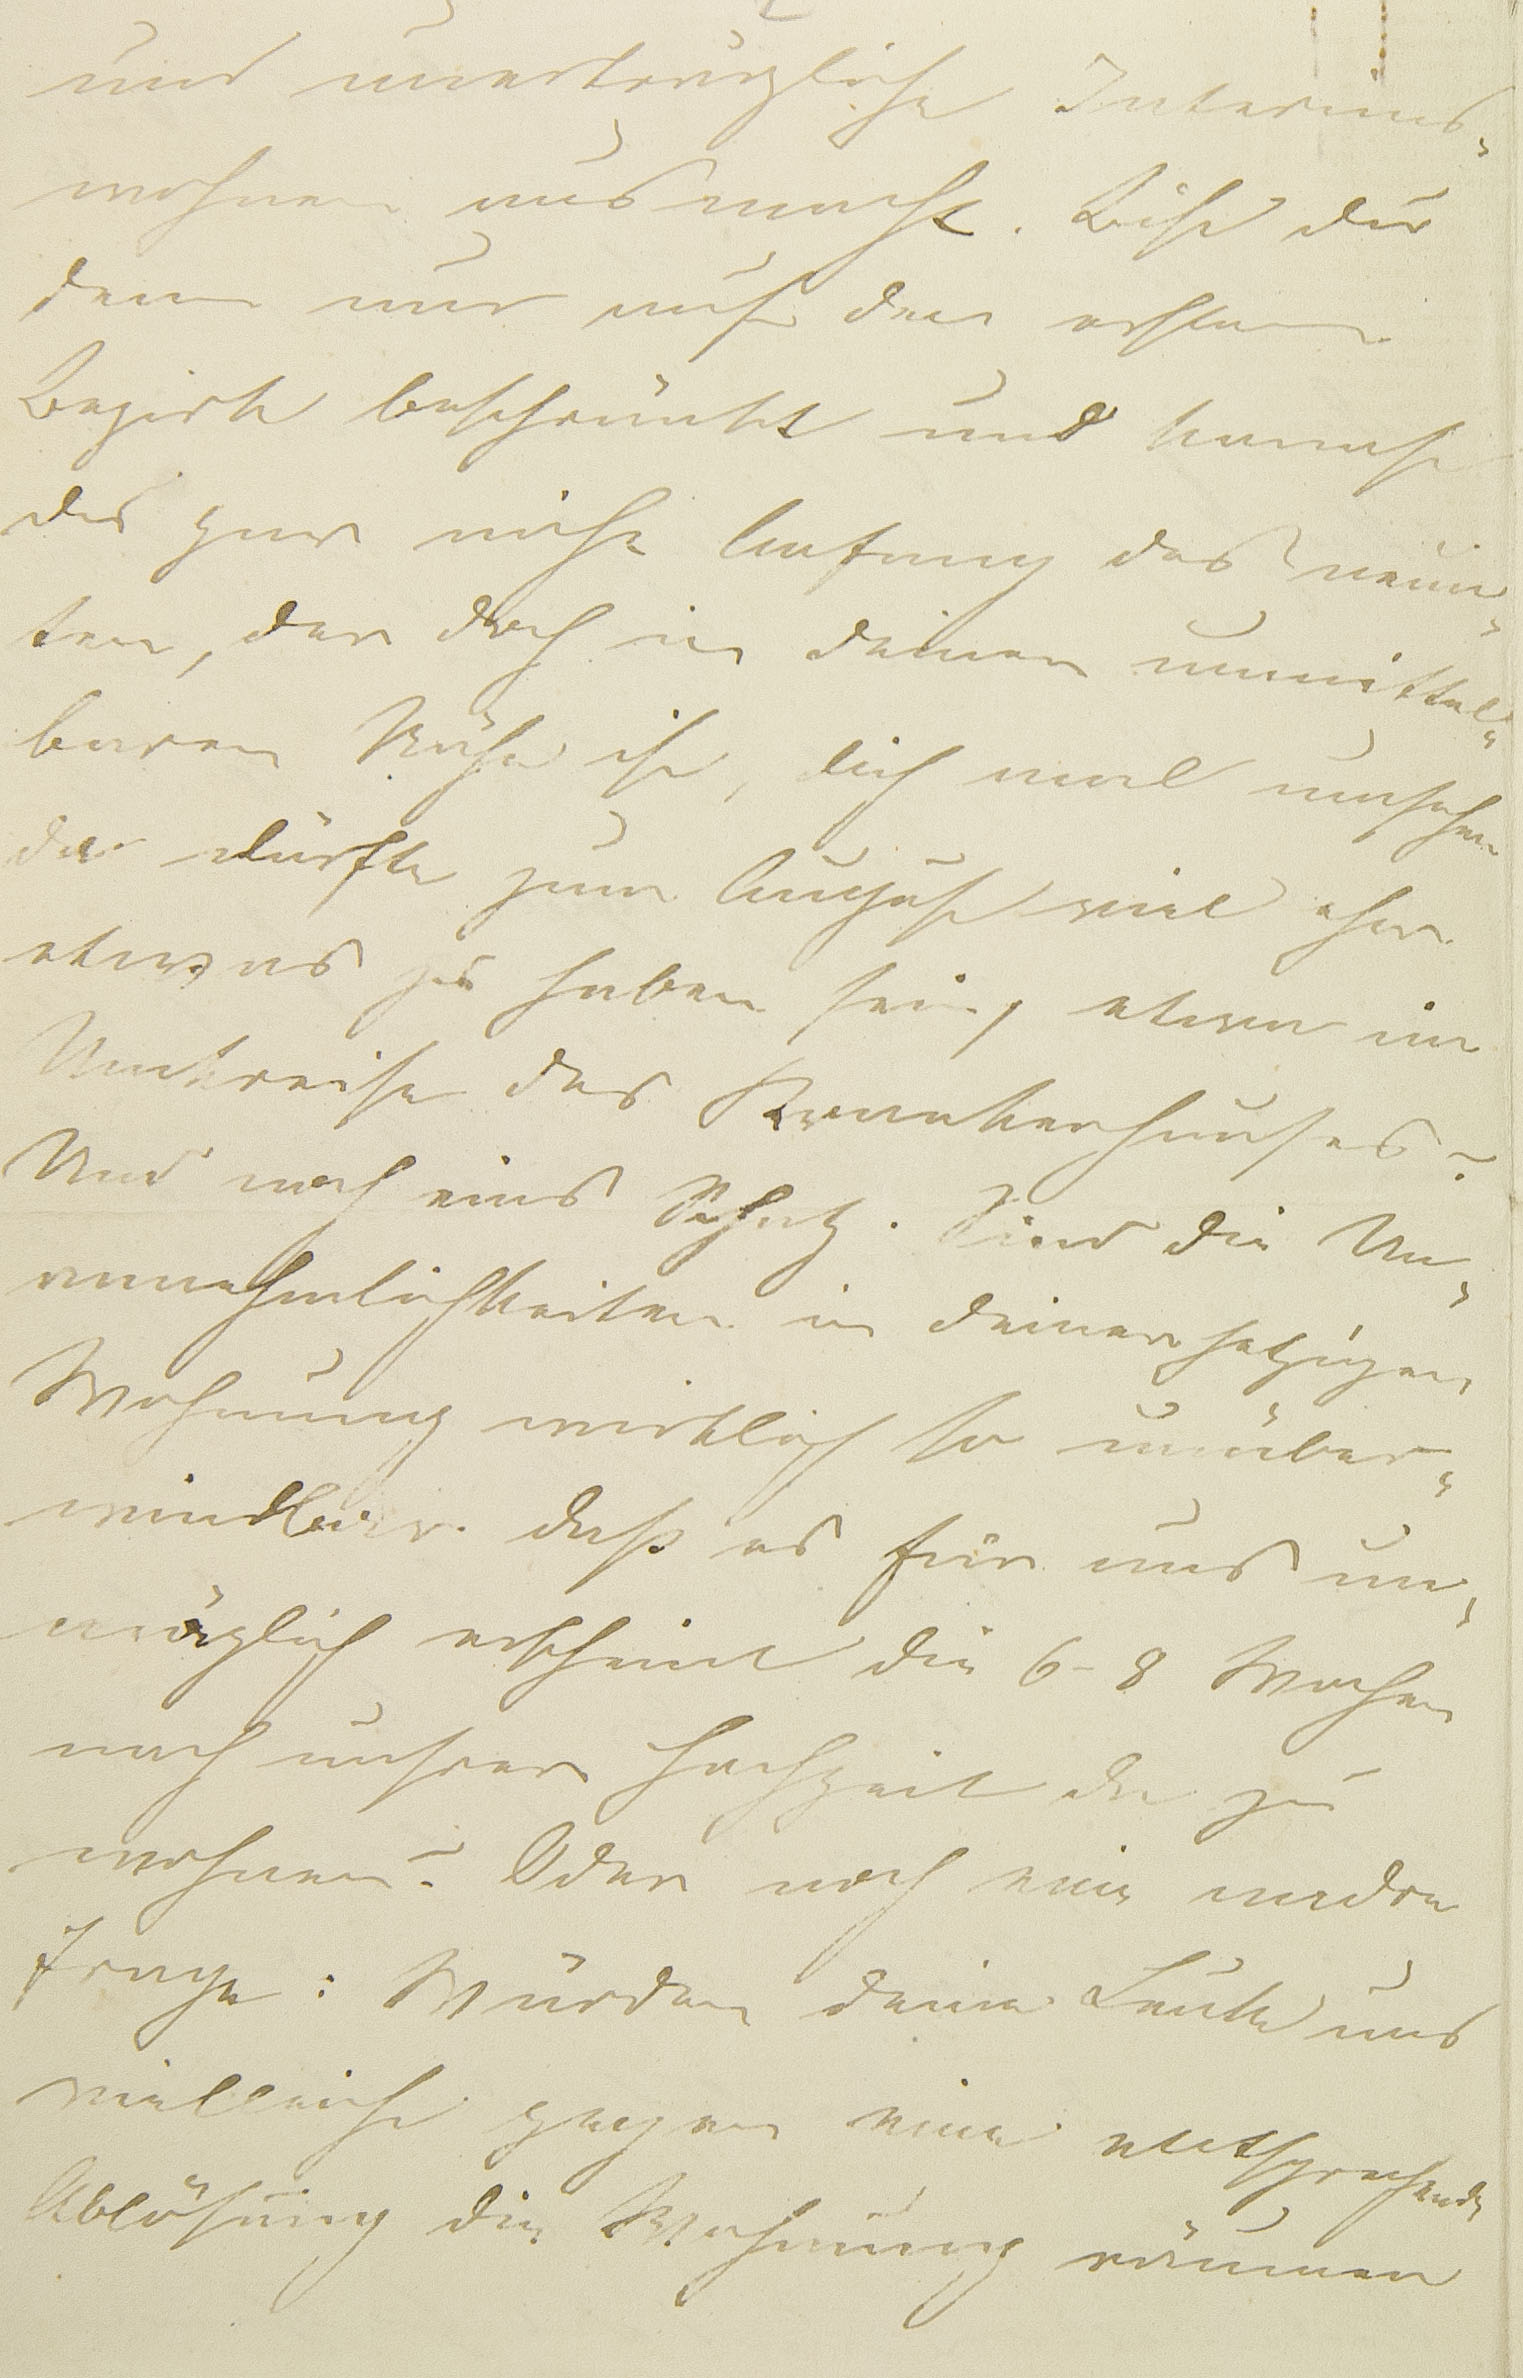 und unerträgliche Interims-
wohnen ausmacht. Bist du
denn nur auf den ersten
Bezirk beschränkt und kannst
du gar nicht Anfang des neun-
ten, der doch in deiner unmittel-
baren Nähe ist, dich mal umsehen
da dürfte zum August viel eher
etwas zu haben sein, etwa im
Umkreise des Krankenhauses?
Und noch eins Schatz. Sind die Un-
annehmlichkeiten in deiner jetzigen
Wohnung wirklich so unüber-
windbar daß es für uns un-
möglich erscheint die 6-8 Wochen
nach unsrer Hochzeit da zu
wohnen? Oder noch eine andre
Frage: Würden deine Leute uns
vielleicht gegen eine entsprechende
Ablösung die Wohnung räumen